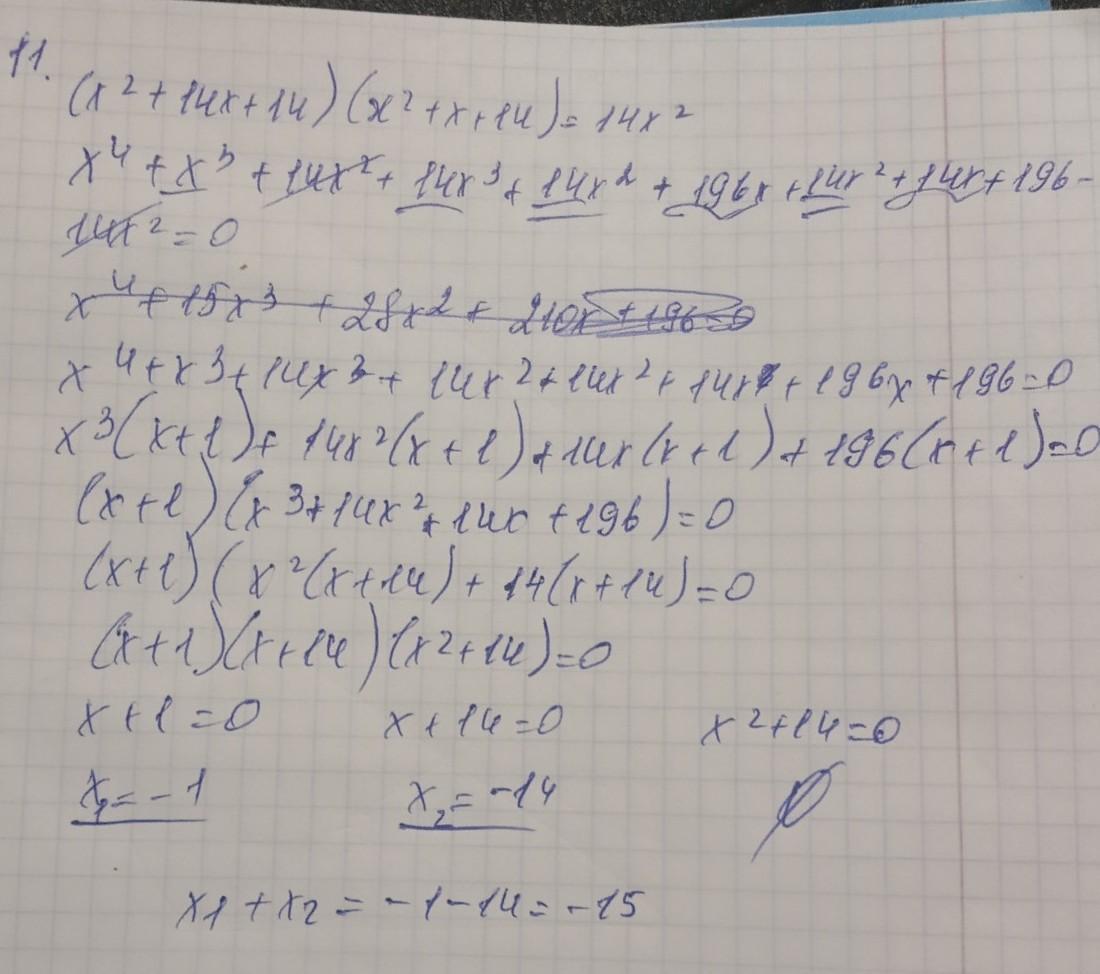 11.
(x² + 14x + 14)(x² + x + 14) = 14x²
x⁴ + x³ + 14x² + 14x³ + 14x² + 196x + 14x² + 14x + 196 -
14x² = 0
x⁴ + 15x³ + 28x² + 210x + 196 = 0
x⁴ + x³ + 14x³ + 14x² + 14x² + 14x + 196x + 196 = 0
x³(x+1) + 14x²(x+1) + 14x(x+1) + 196(x+1) = 0
(x+1)(x³ + 14x² + 14x + 196) = 0
(x+1)(x²(x+14) + 14(x+14) = 0
(x+1)(x+14)(x²+14) = 0
x+1 = 0 x+14 = 0 x²+14 = 0
x₁ = -1 x₂ = -14 ∅
x1 + x2 = -1 - 14 = -15